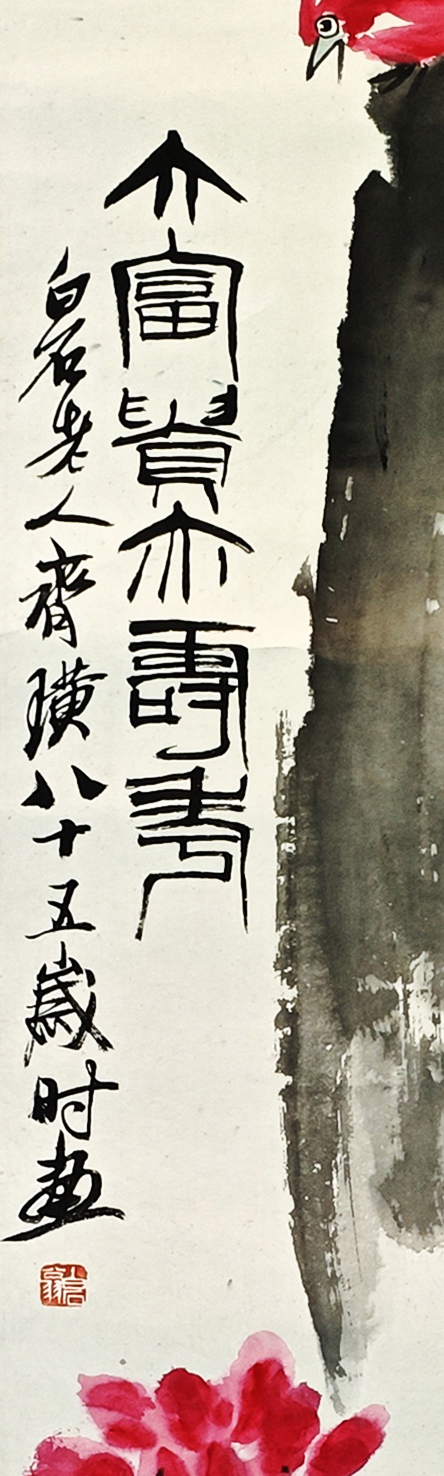 大富貴亦壽考
白石老人齊璜八十五歲时畫